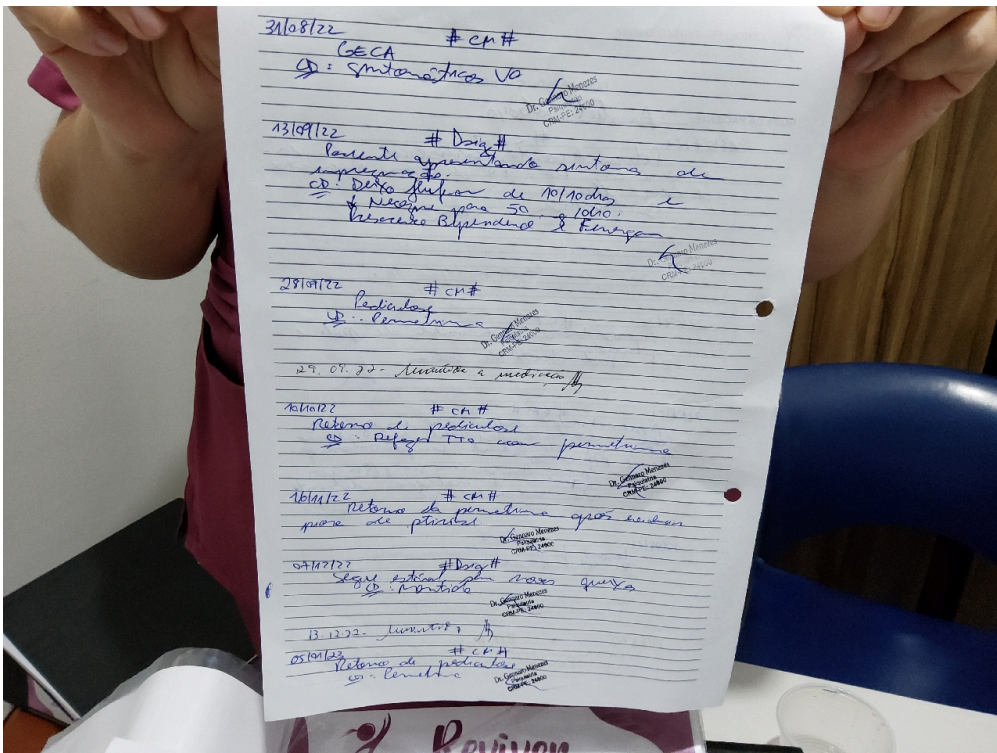 31/08/22 # CM #
GECA
CD: Sintomáticos VO
Dr. Gennaro Menezes
Psiquiatria
CRM-PE: 24600
13/09/22 # Psiq #
Paciente apresentando sintomas de
impregnação.
CD: Deixo de 10/10 dias e
↓ para 50 /dia.
Prescrevo Biperideno e Fenergan
Dr. Gennaro Menezes
CRM-PE: 24600
28/09/22 # CM #
Pediculose
CD: Permetrina
Dr. Gennaro Menezes
Psiquiatria
CRM-PE: 24600
29.09.22 - Mantida a medicação
10/10/22 # CM #
Retorno de pediculose
CD: Refazer TTO com permetrina
Dr. Gennaro Menezes
Psiquiatria
CRM-PE: 24600
16/11/22 # CM #
Retorno da permetrina após
para de
Dr. Gennaro Menezes
Psiquiatria
CRM-PE: 24600
07/12/22 # Psiq #
Segue estável sem novas queixas
CD: Mantida
Dr. Gennaro Menezes
Psiquiatria
CRM-PE: 24600
13.12.22 - Mantida
05/01/23 # CM #
Retorno de pediculose
CD: Permetrina
Dr. Gennaro Menezes
Psiquiatria
CRM-PE: 24600
Reviver